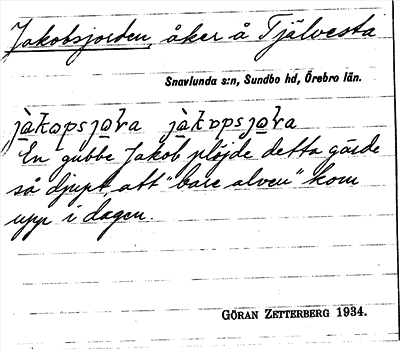 Jakobsjorden, åker å Tjälvesta
Snavlunda s:n, Sundbo hd, Örebro län.
En gubbe Jakob plöjde detta gärde
så djupt, att "bare alven" kom
upp i dagen.
GÖRAN ZETTERBERG 1934.